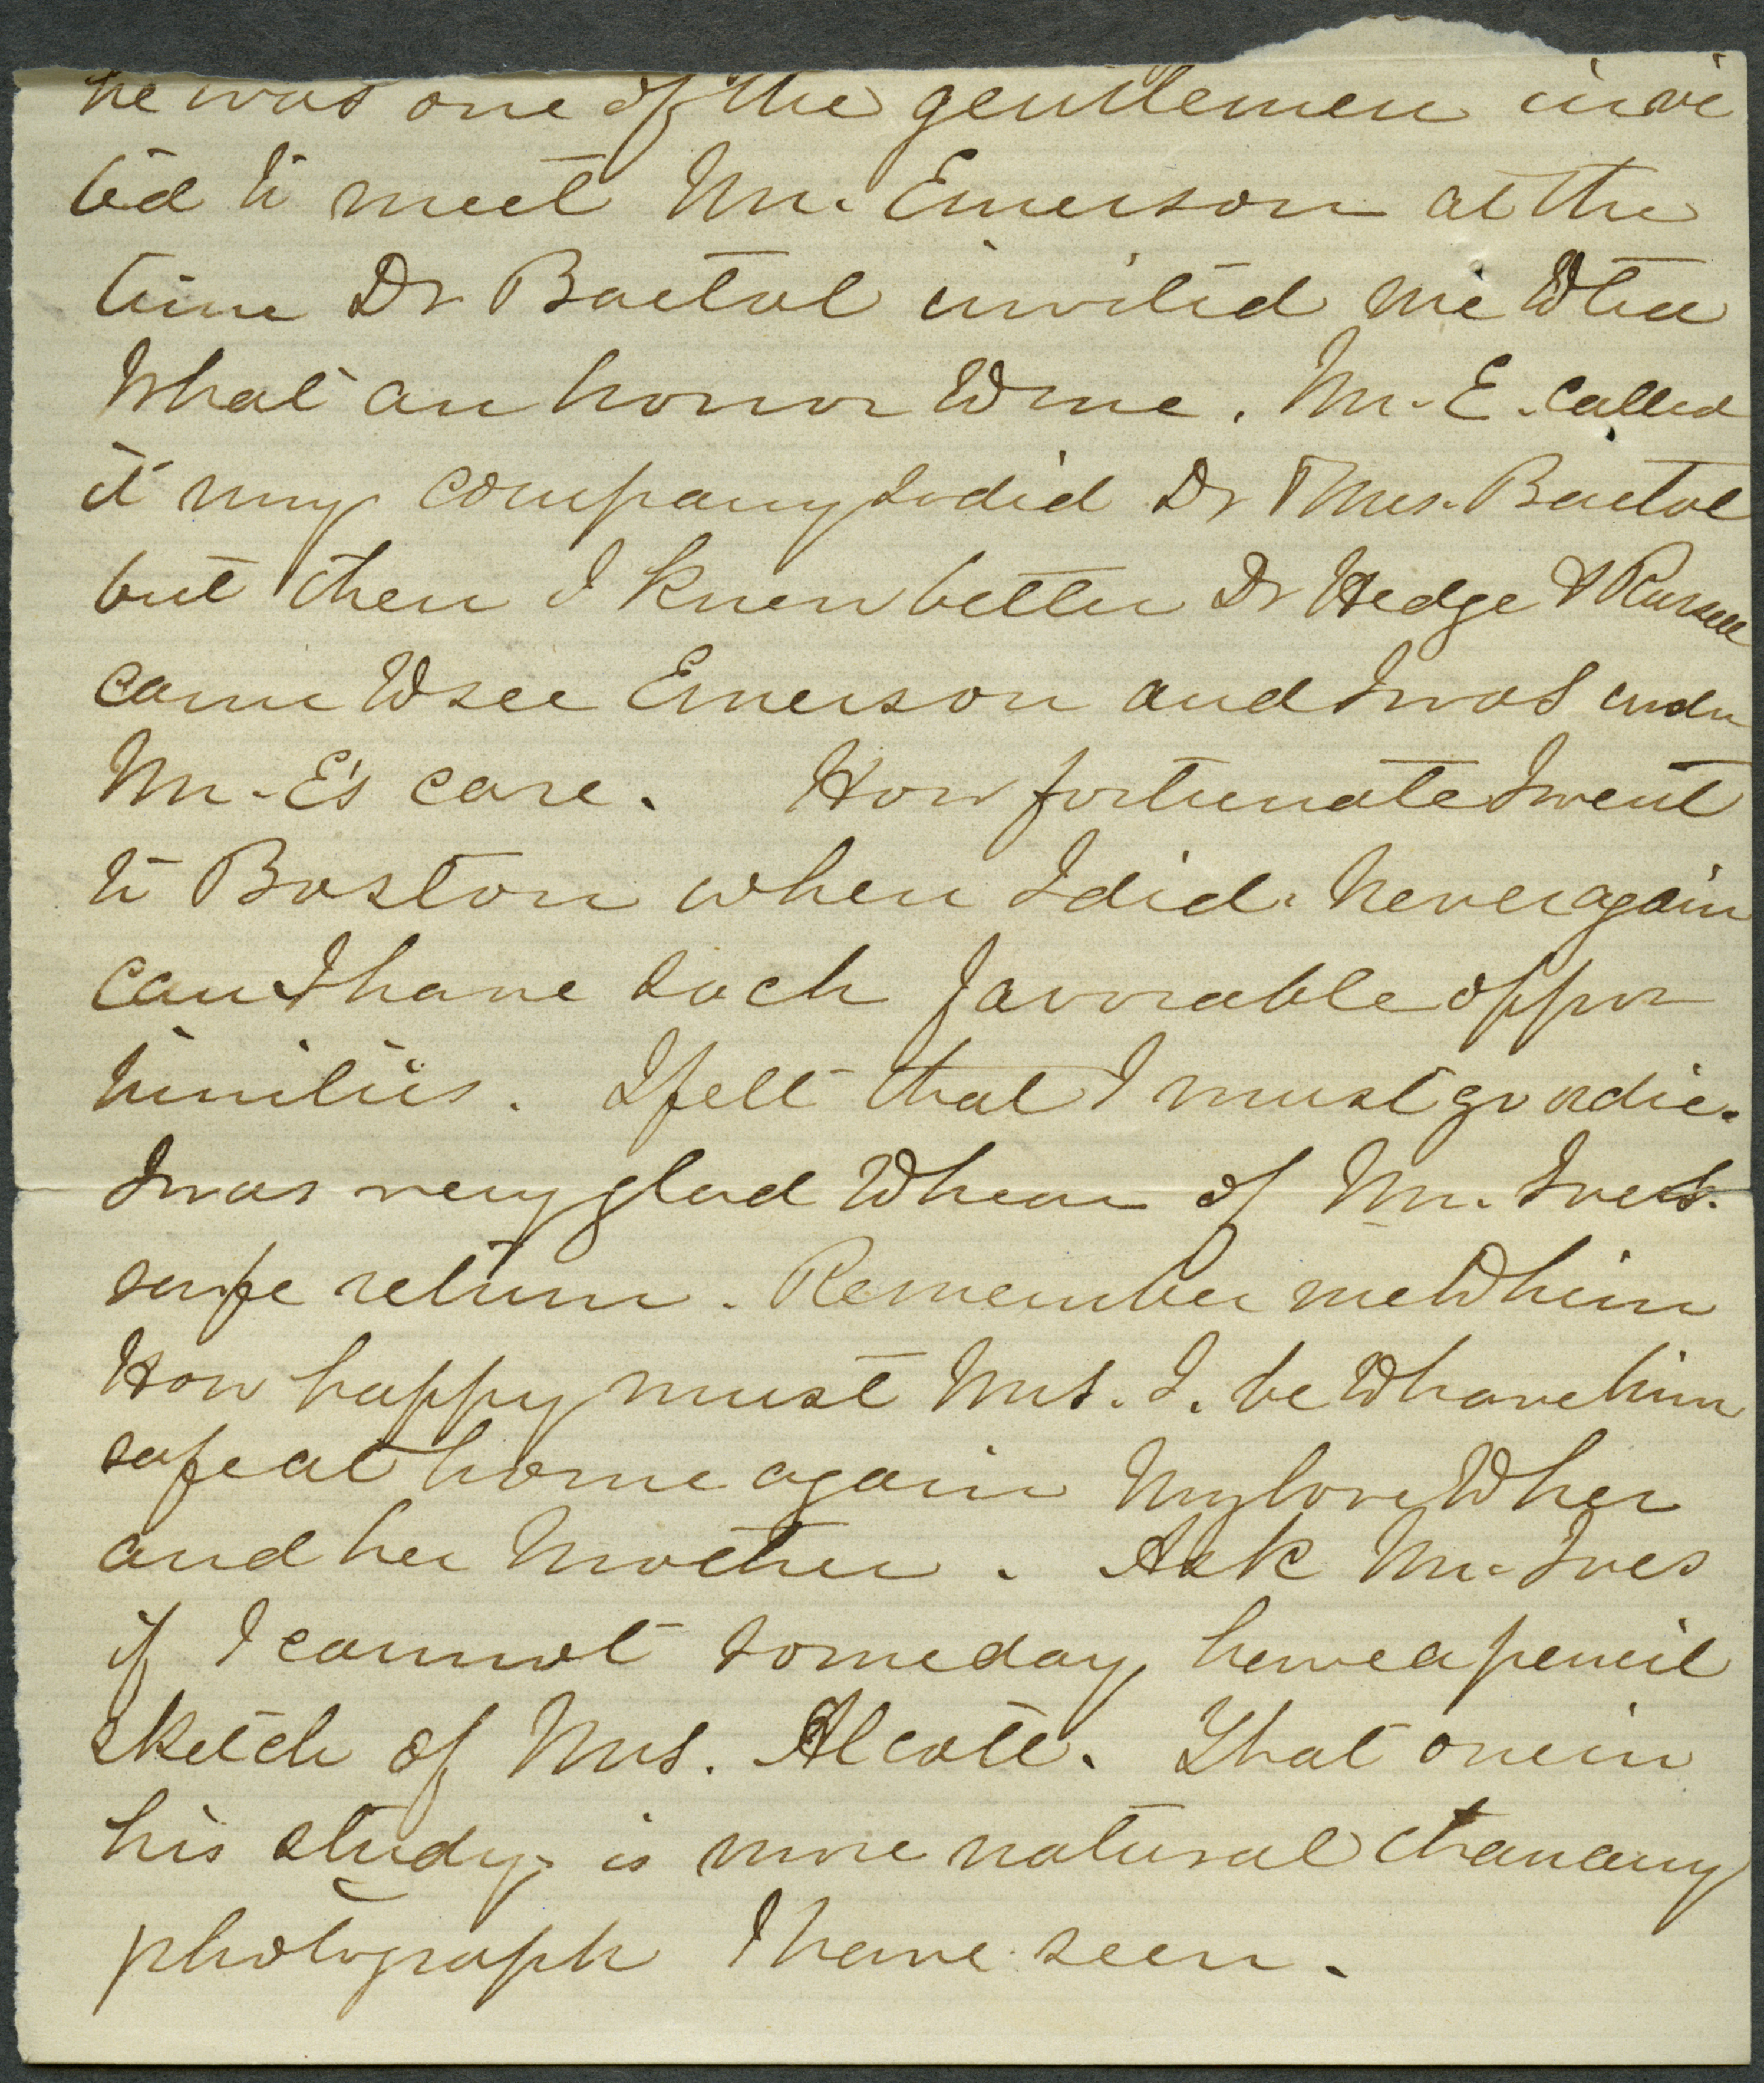 he was one of the gentlemen invi
ted to meet Mr. Emerson at the
time Dr Bartol invited me to tea
What an honor to me. Mr. E. called
it my company so did Dr & Mrs. Bartol
but then I knew better Dr Hedge & Russell
came to see Emerson and I was under
Mr. E's care. How fortunate I went
to Boston when I did. Never again
can I have such favorable oppor
tunities. I felt that I must go or die.
I was very glad to hear of Mr. Ives.
safe return. Remember me to him
How happy must Mrs. I. be to have him
safe at home again My love to her
and her Mother. Ask Mr. Ives
if I cannot someday, have a pencil
sketch of Mrs. Alcott. That one in
his study, is more natural than any
photograph I have seen.